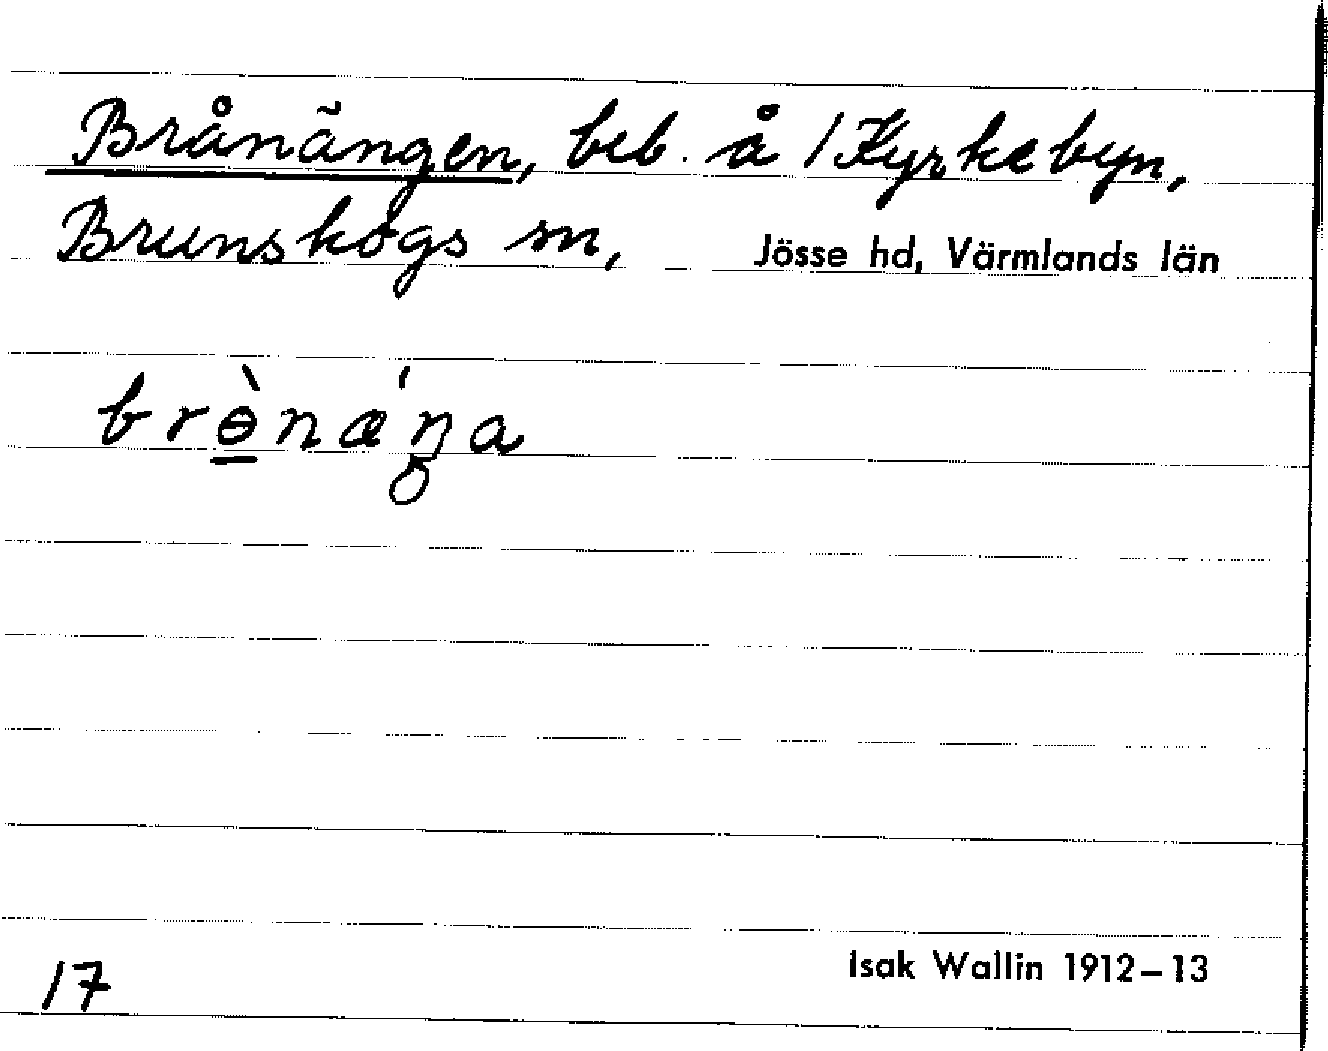 Brånängen, beb. å /Kyrkebyn,
Brunskogs sn, Jösse hd, Värmlands län
brө̀næ´ŋa
17
Isak Wallin 1912–13